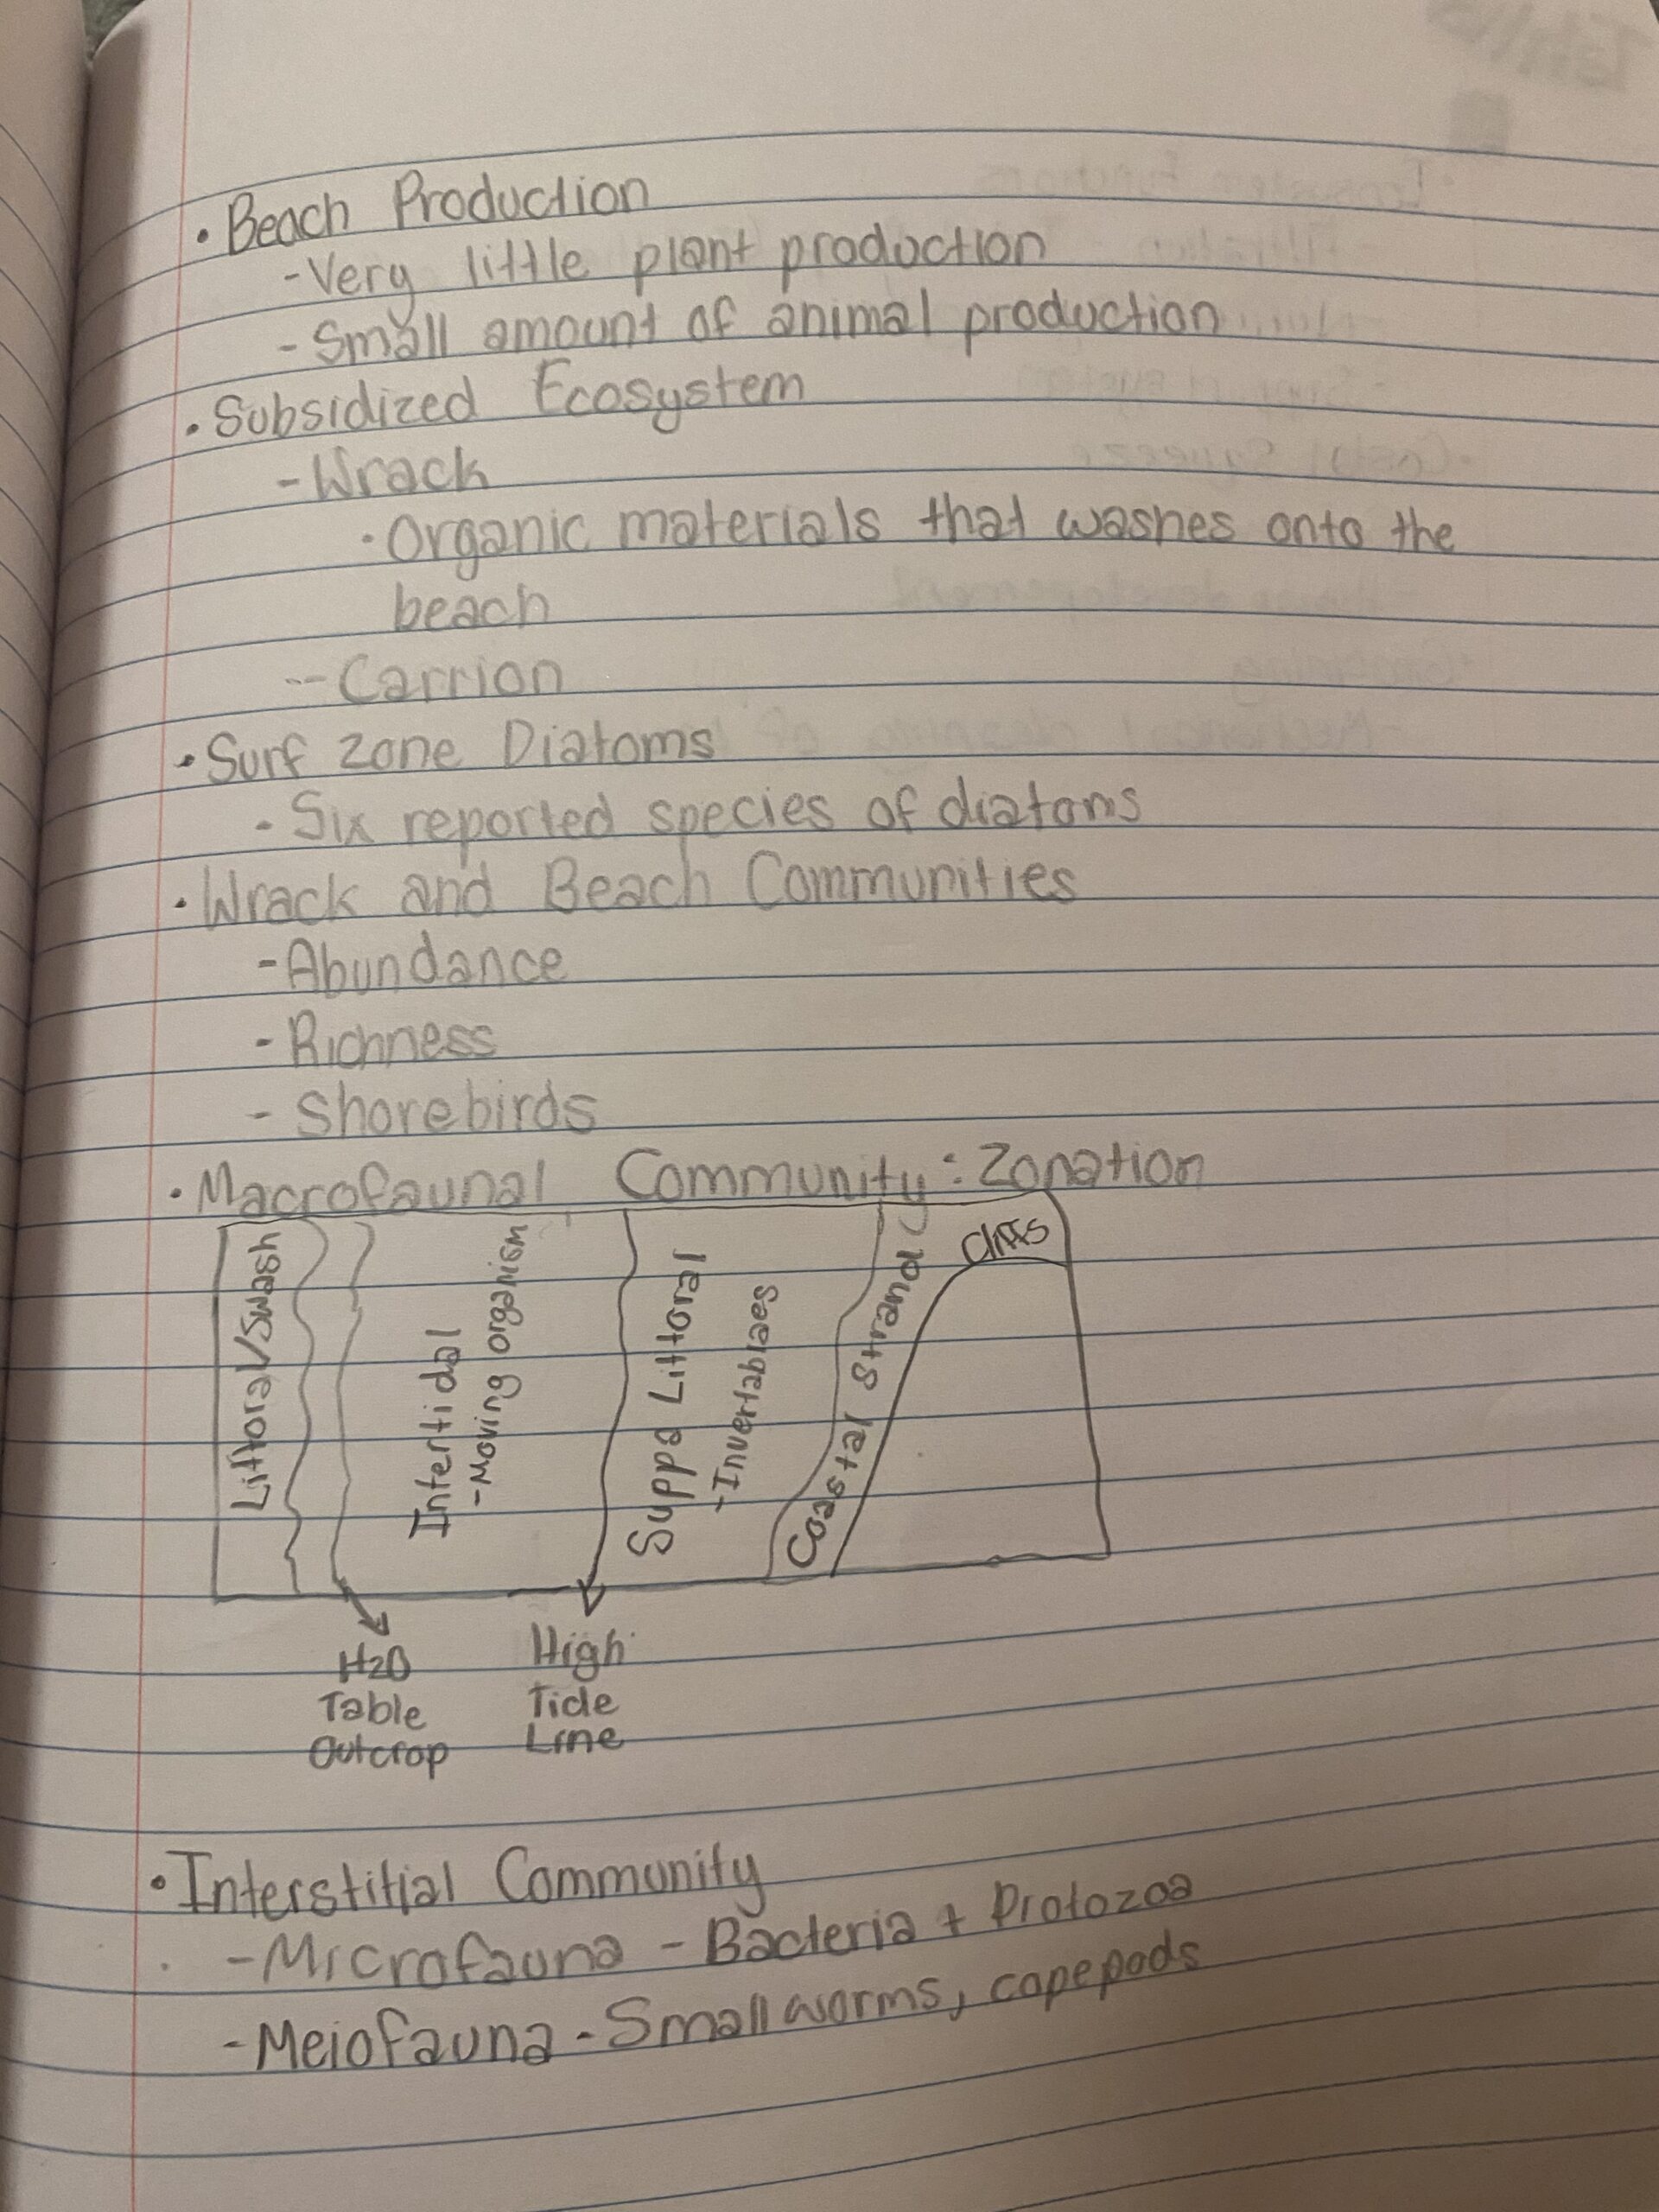 • Beach Production
- Very little plant production
- Small amount of animal production
• Subsidized Ecosystem
- Wrack
• Organic materials that washes onto the
beach
-- Carrion
• Surf Zone Diatoms
- Six reported species of diatoms
• Wrack and Beach Communities
- Abundance
- Richness
- Shorebirds
• Macrofaunal Community: Zonation
Littoral/Swash
Intertidal
- Moving organism
Suppa Littoral
- Invertablaes
Coastal Strand
Cliffs
H2O
Table
Outcrop
High
Tide
Line
• Interstitial Community
- Microfauna - Bacteria + Protozoa
- Meiofauna - Small worms, copepods